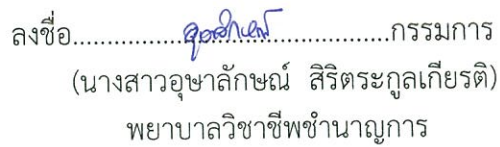 ลงชื่อ.......................................................กรรมการ
(นางสาวอุษาลักษณ์ สิริตระกูลเกียรติ)
พยาบาลวิชาชีพชำนาญการ